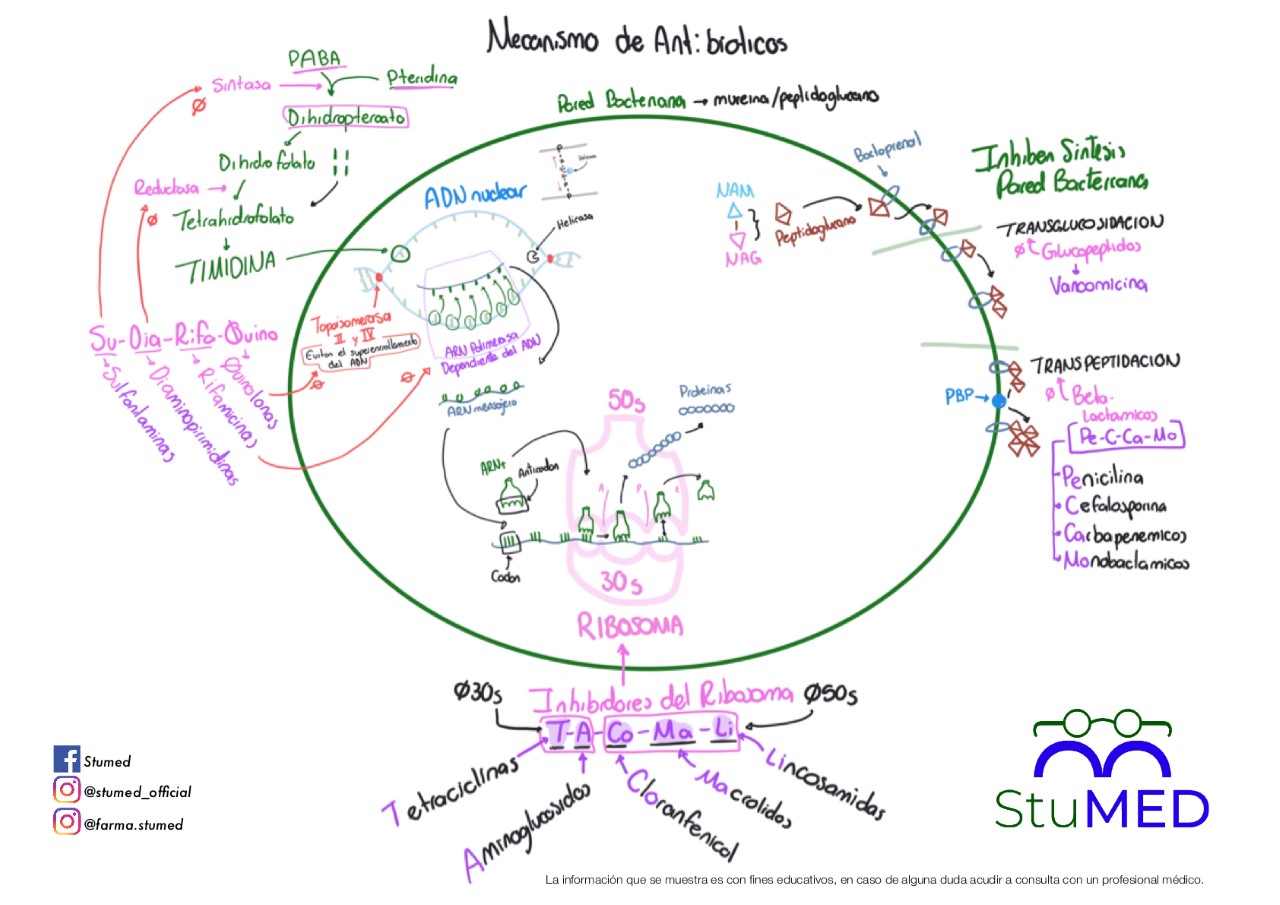 Mecanismo de Antibióticos
PABA
Sintasa
Pteridina
Dihidropteroato
Dihidrofolato
Reductasa
Tetrahidrofolato
TIMIDINA
Ø
Ø
Su-Dia-Rifa-Quino
Sulfontaminas
Diaminopirimidinas
Rifamicinas
Quinolonas
Pared Bacteriana → mureina/peptidoglucano
ADN nuclear
Helicasa
Helicasa
Topoisomerasa
II y IV
Evitan el superenrollamiento
del ADN
Ø
Ø
ARN Polimerasa
Dependiente del ADN
ARN mensajero
ARNt
Anticodon
Codon
50s
Proteinas
A
P
E
30s
RIBOSOMA
NAM
NAG
Peptidoglucano
Bactoprenol
Inhiben Sintesis
Pared Bacteriana
TRANSGLUCOSIDACION
Ø Glucopeptidos
Vancomicina
TRANSPEPTIDACION
PBP
Ø Beta-
lactamicos
Pe-C-Ca-Mo
Penicilina
Cefalosporina
Carbapenemicos
Monobaclamicos
Ø30s
Inhibidores del Ribosoma
Ø50s
T-A-Co-Ma-Li
Tetraciclinas
Aminoglucosidos
Cloranfenicol
Macrolidos
Lincosamidas
Stumed
@stumed_official
@farma.stumed
StuMED
La información que se muestra es con fines educativos, en caso de alguna duda acudir a consulta con un profesional médico.